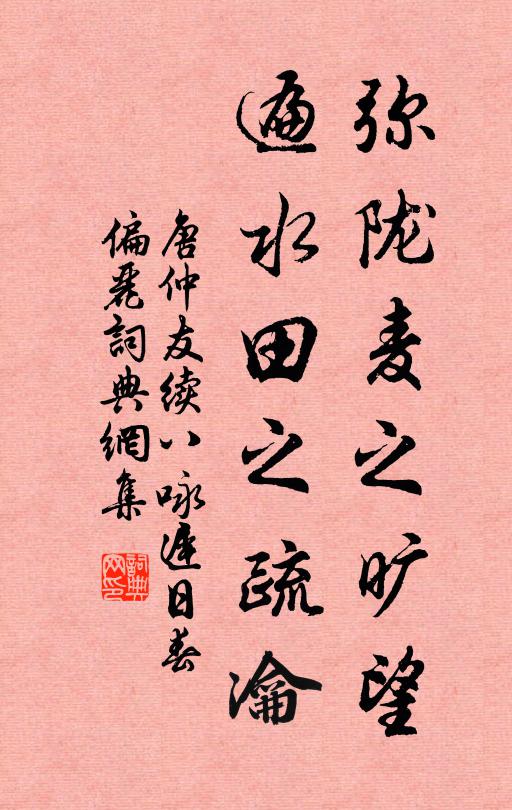 弥陇麦之旷望
遍水田之疏瀹
唐仲友续八咏迟日春
偏丽詞典網集
詞典網印